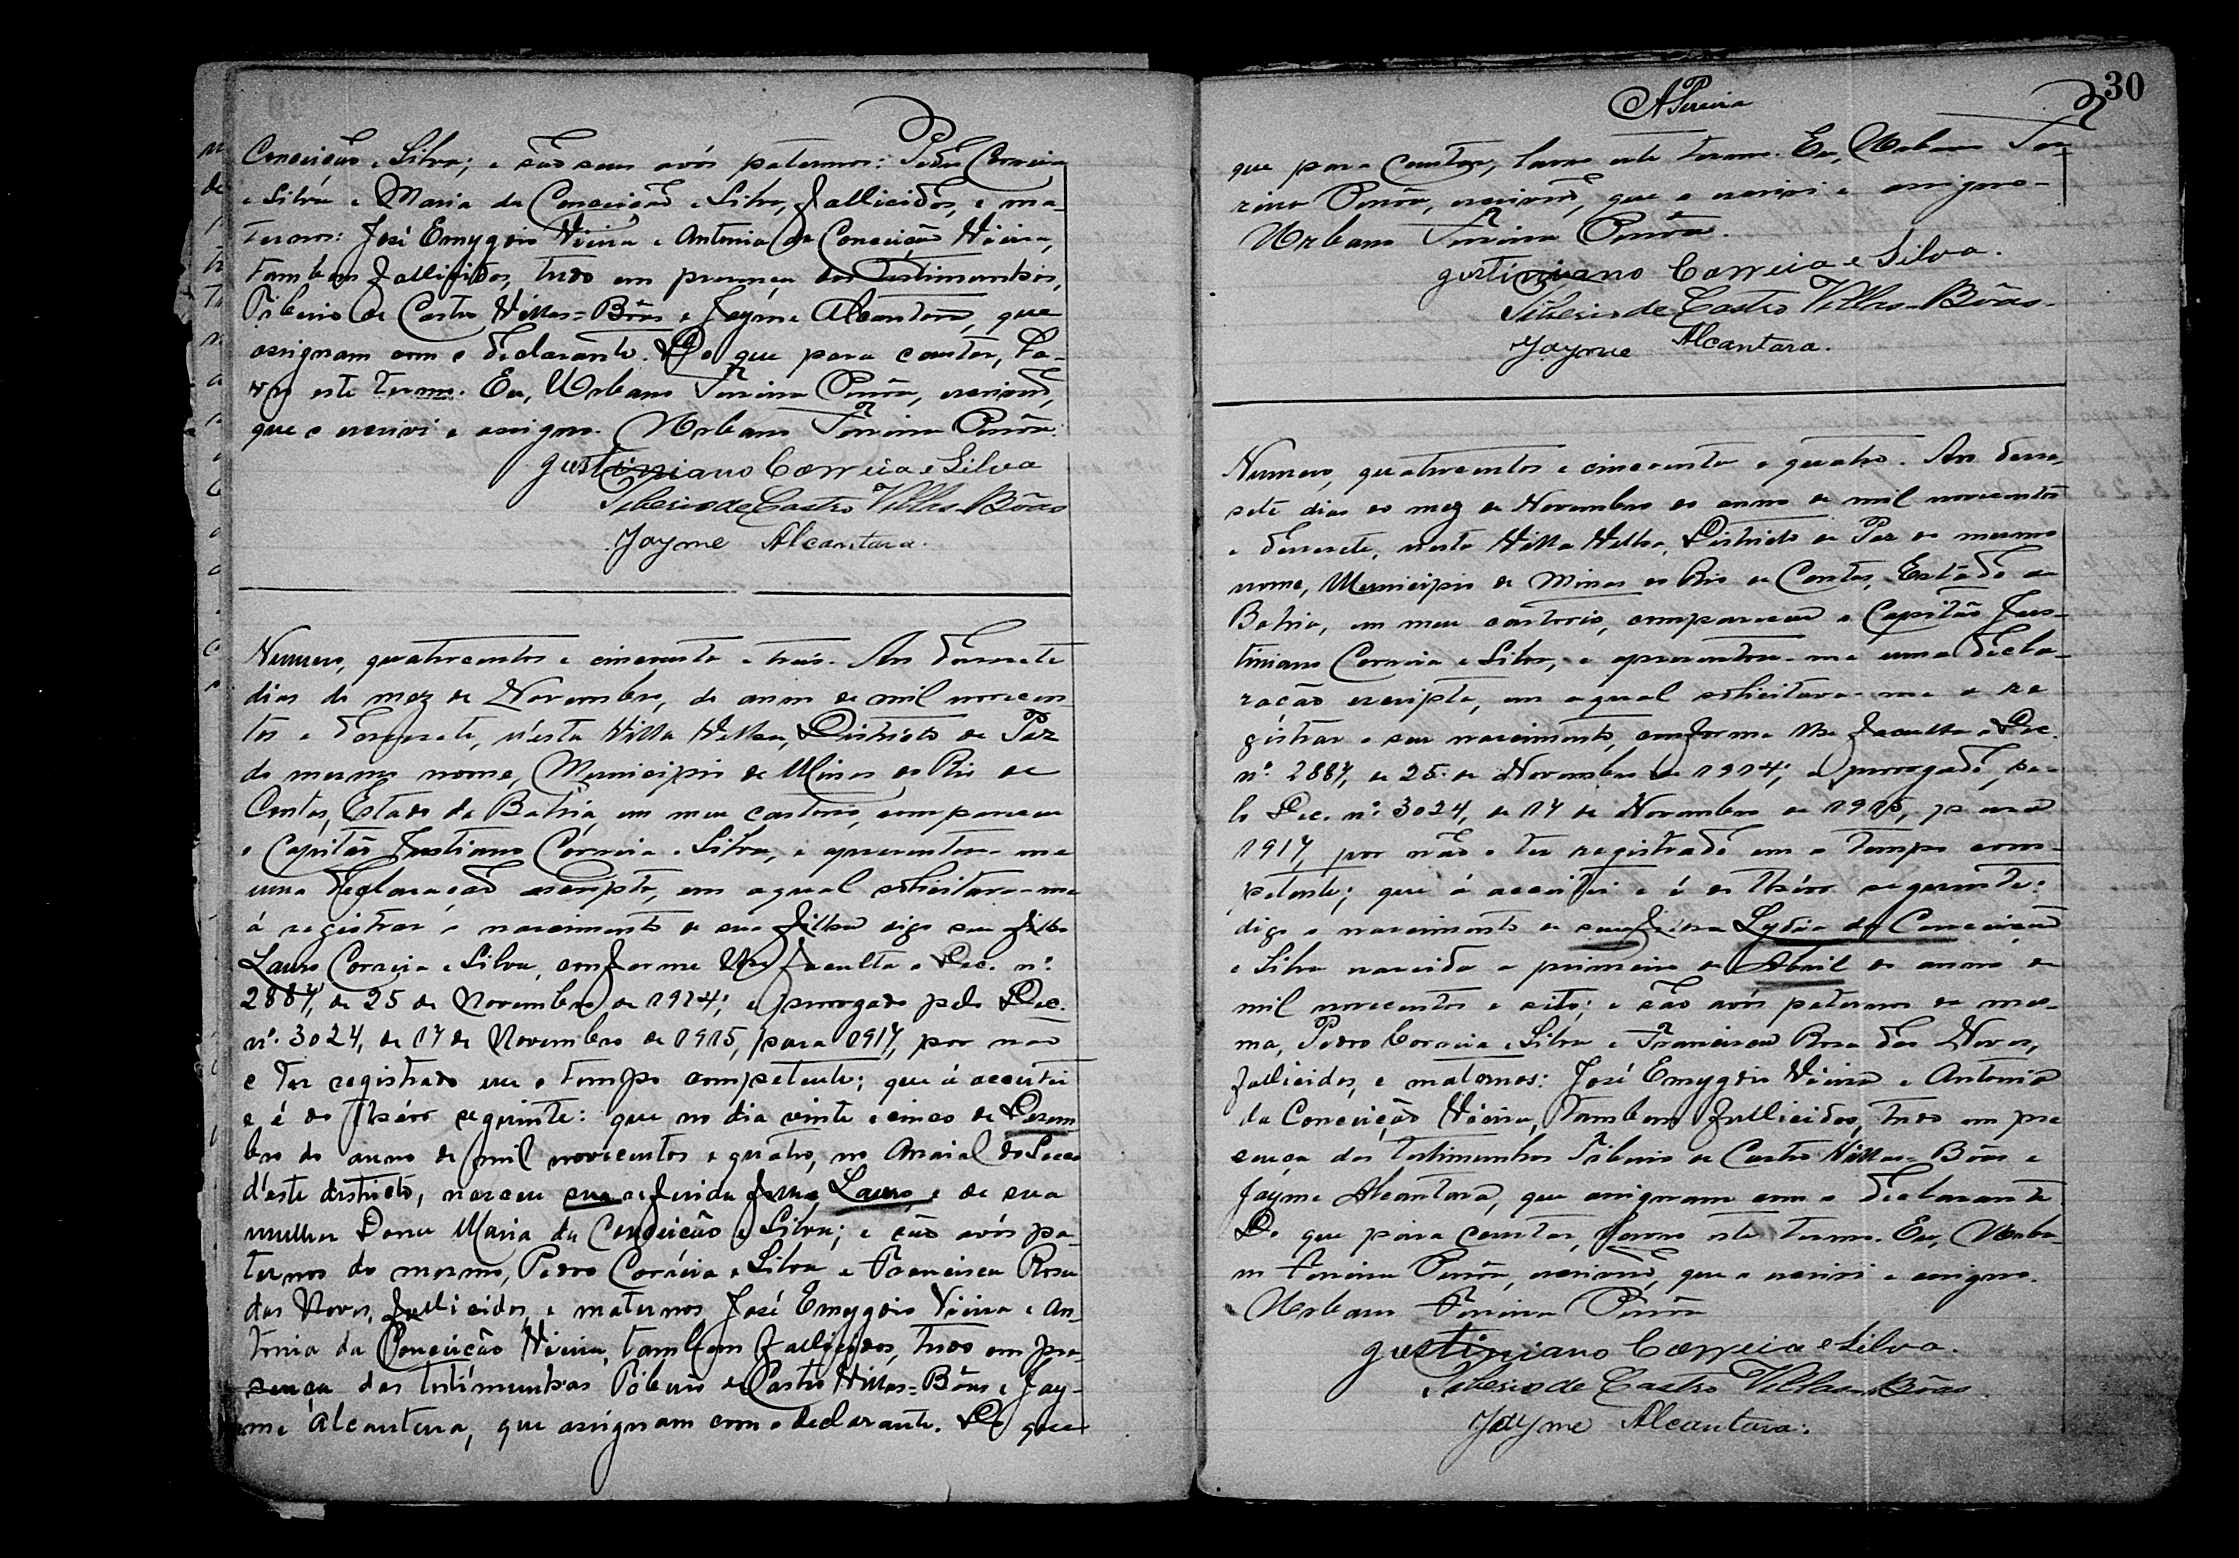 Conceição e Silva; e são seus avós paternos: Pedro Correia
e Silva e Maria da Conceição e Silva, fallicidos, e ma-
ternos: José Emygdio Vieira e Antonia da Conceição Vieira,
tambem fallicidos, tudo em presença das testimunhas,
Tiberio de Castro Villas=Bôas e Jayme Alcantara, que
assignam com o declarante. Do que para constar, la-
vro este termo. Eu, Urbano Ferreira, escrivão,
que o escrivi e assigno. Urbano Ferreira
Justiniano Correia e Silva
Tiberio de Castro Villas-Bôas
Jayme Alcantara.
Numero, quatrocentos e cincoenta e treis. Aos desesete
dias do mez de Novembro, do anno de mil novecen
tos e desesete, n'esta Villa Velha, Districto de Paz
do mesmo nome, Municipio de Minas do Rio de
Contas, Estado da Bahia, em meu cartorio, compareceu
o Capitão Justiano Correia e Silva, e apresentou-me
uma declaração escripta, em a qual solicitava-me
á registrar o nascimento de sua filha digo seu filho
Lauro Correia e Silva, conforme lhe faculta o Dec. nº.
2887, de 25 de Novembro de 1914; e prorogado pelo Dec.
nº. 3024, de 17 de Novembro de 1915, para 1917, por não
o ter registrado em o tempo competente; que á acceitei
e é do theôr seguinte: que no dia vinte e cinco de Dezem
bro do anno de mil novecentos e quatro, no Arraial do
d'este districto, nasceu sua referida Lauro, e de sua
mulher Dona Maria da Conceição e Silva; e são avós pa-
ternos do mesmo, Pedro Correia e Silva e Francisca Rosa
das Neves, fallicidos, e maternos José Emygdio Vieira e An-
tonia da Conceição Vieira, tambem fallicidos, tudo em pre-
sença das testimunhas Tiberio de Castro Villas=Bôas e Jay-
me Alcantara, que assignam com o declarante. Do que
30
APereira
que para constar, lavro este termo. Eu, Urbano Fer-
reira, escrivão, que o escrivi e assigno-
Urbano Ferreira
Justiniano Correia e Silva.
Tiberio de Castro Villas-Bôas.
Jayme Alcantara.
Numero, quatrocentos e cincoenta e quatro. Aos dese-
sete dias do mez de Novembro do anno de mil novecentos
e desesete, nesta Villa Velha, Districto de Paz do mesmo
nome, Municipio de Minas do Rio de Contas, Estado da
Bahia, em meu cartorio, compareceu o Capitão Jus-
tiniano Correia e Silva, e apresentou-me uma decla-
ração escripta, em a qual solicitava-me a re
gistrar o seu nascimento, conforme lhe faculta o Dec.
nº. 2887, de 25 de Novembro de 1914; e prorogado, pe-
lo Dec. nº. 3024, de 17 de Novembro de 1915, para
1917, por não o ter registrado em o tempo com-
petente; que á acceitei e é do theôr seguinte:
digo o nascimento de sua filha Lydia da Conceição
e Silva nascida a primeiro de Abril do anno de
mil novecentos e sete; e são avós paternos da mes-
ma, Pedro Correia e Silva e Francisca Rosa das Neves,
fallicidos, e maternos: José Emygdio Vieira e Antonia
da Conceição Vieira, tambem fallicidos, tudo em pre
sença das testimunhas Tiberio de Castro Villas-Bôas e
Jayme Alcantara, que assignam com o declarante
Do que para constar, lavro este termo. Eu, Urba-
no Ferreira, escrivão, que o escrivi e assigno.
Urbano Ferreira
Justiniano Correia e Silva.
Tiberio de Castro Villas-Bôas.
Jayme Alcantara.